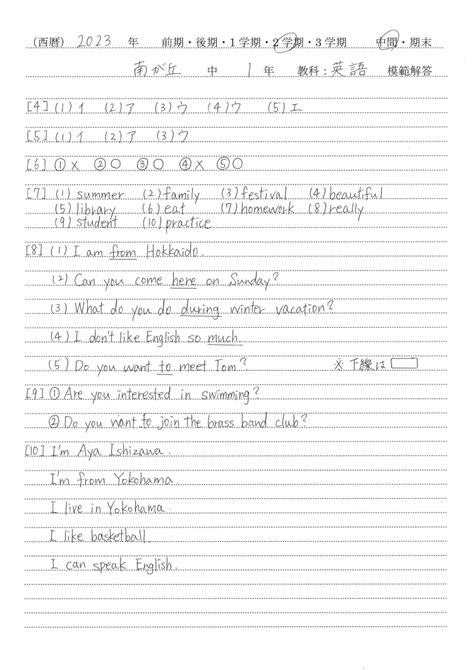 (西暦) 2023 年 前期・後期・1学期・2学期・3学期 中間・期末
南が丘 中 1 年 教科：英語 模範解答
[4] (1) イ (2) ア (3) ウ (4) ウ (5) エ
[5] (1) イ (2) ア (3) ウ
[6] ①× ②○ ③○ ④× ⑤○
[7] (1) summer (2) family (3) festival (4) beautiful
(5) library (6) eat (7) homework (8) really
(9) student (10) practice
[8] (1) I am from Hokkaido.
(2) Can you come here on Sunday?
(3) What do you do during winter vacation?
(4) I don't like English so much.
(5) Do you want to meet Tom? ※下線は
[9] ① Are you interested in swimming?
② Do you want to join the brass band club?
[10] I'm Aya Ishizawa.
I'm from Yokohama.
I live in Yokohama.
I like basketball.
I can speak English.